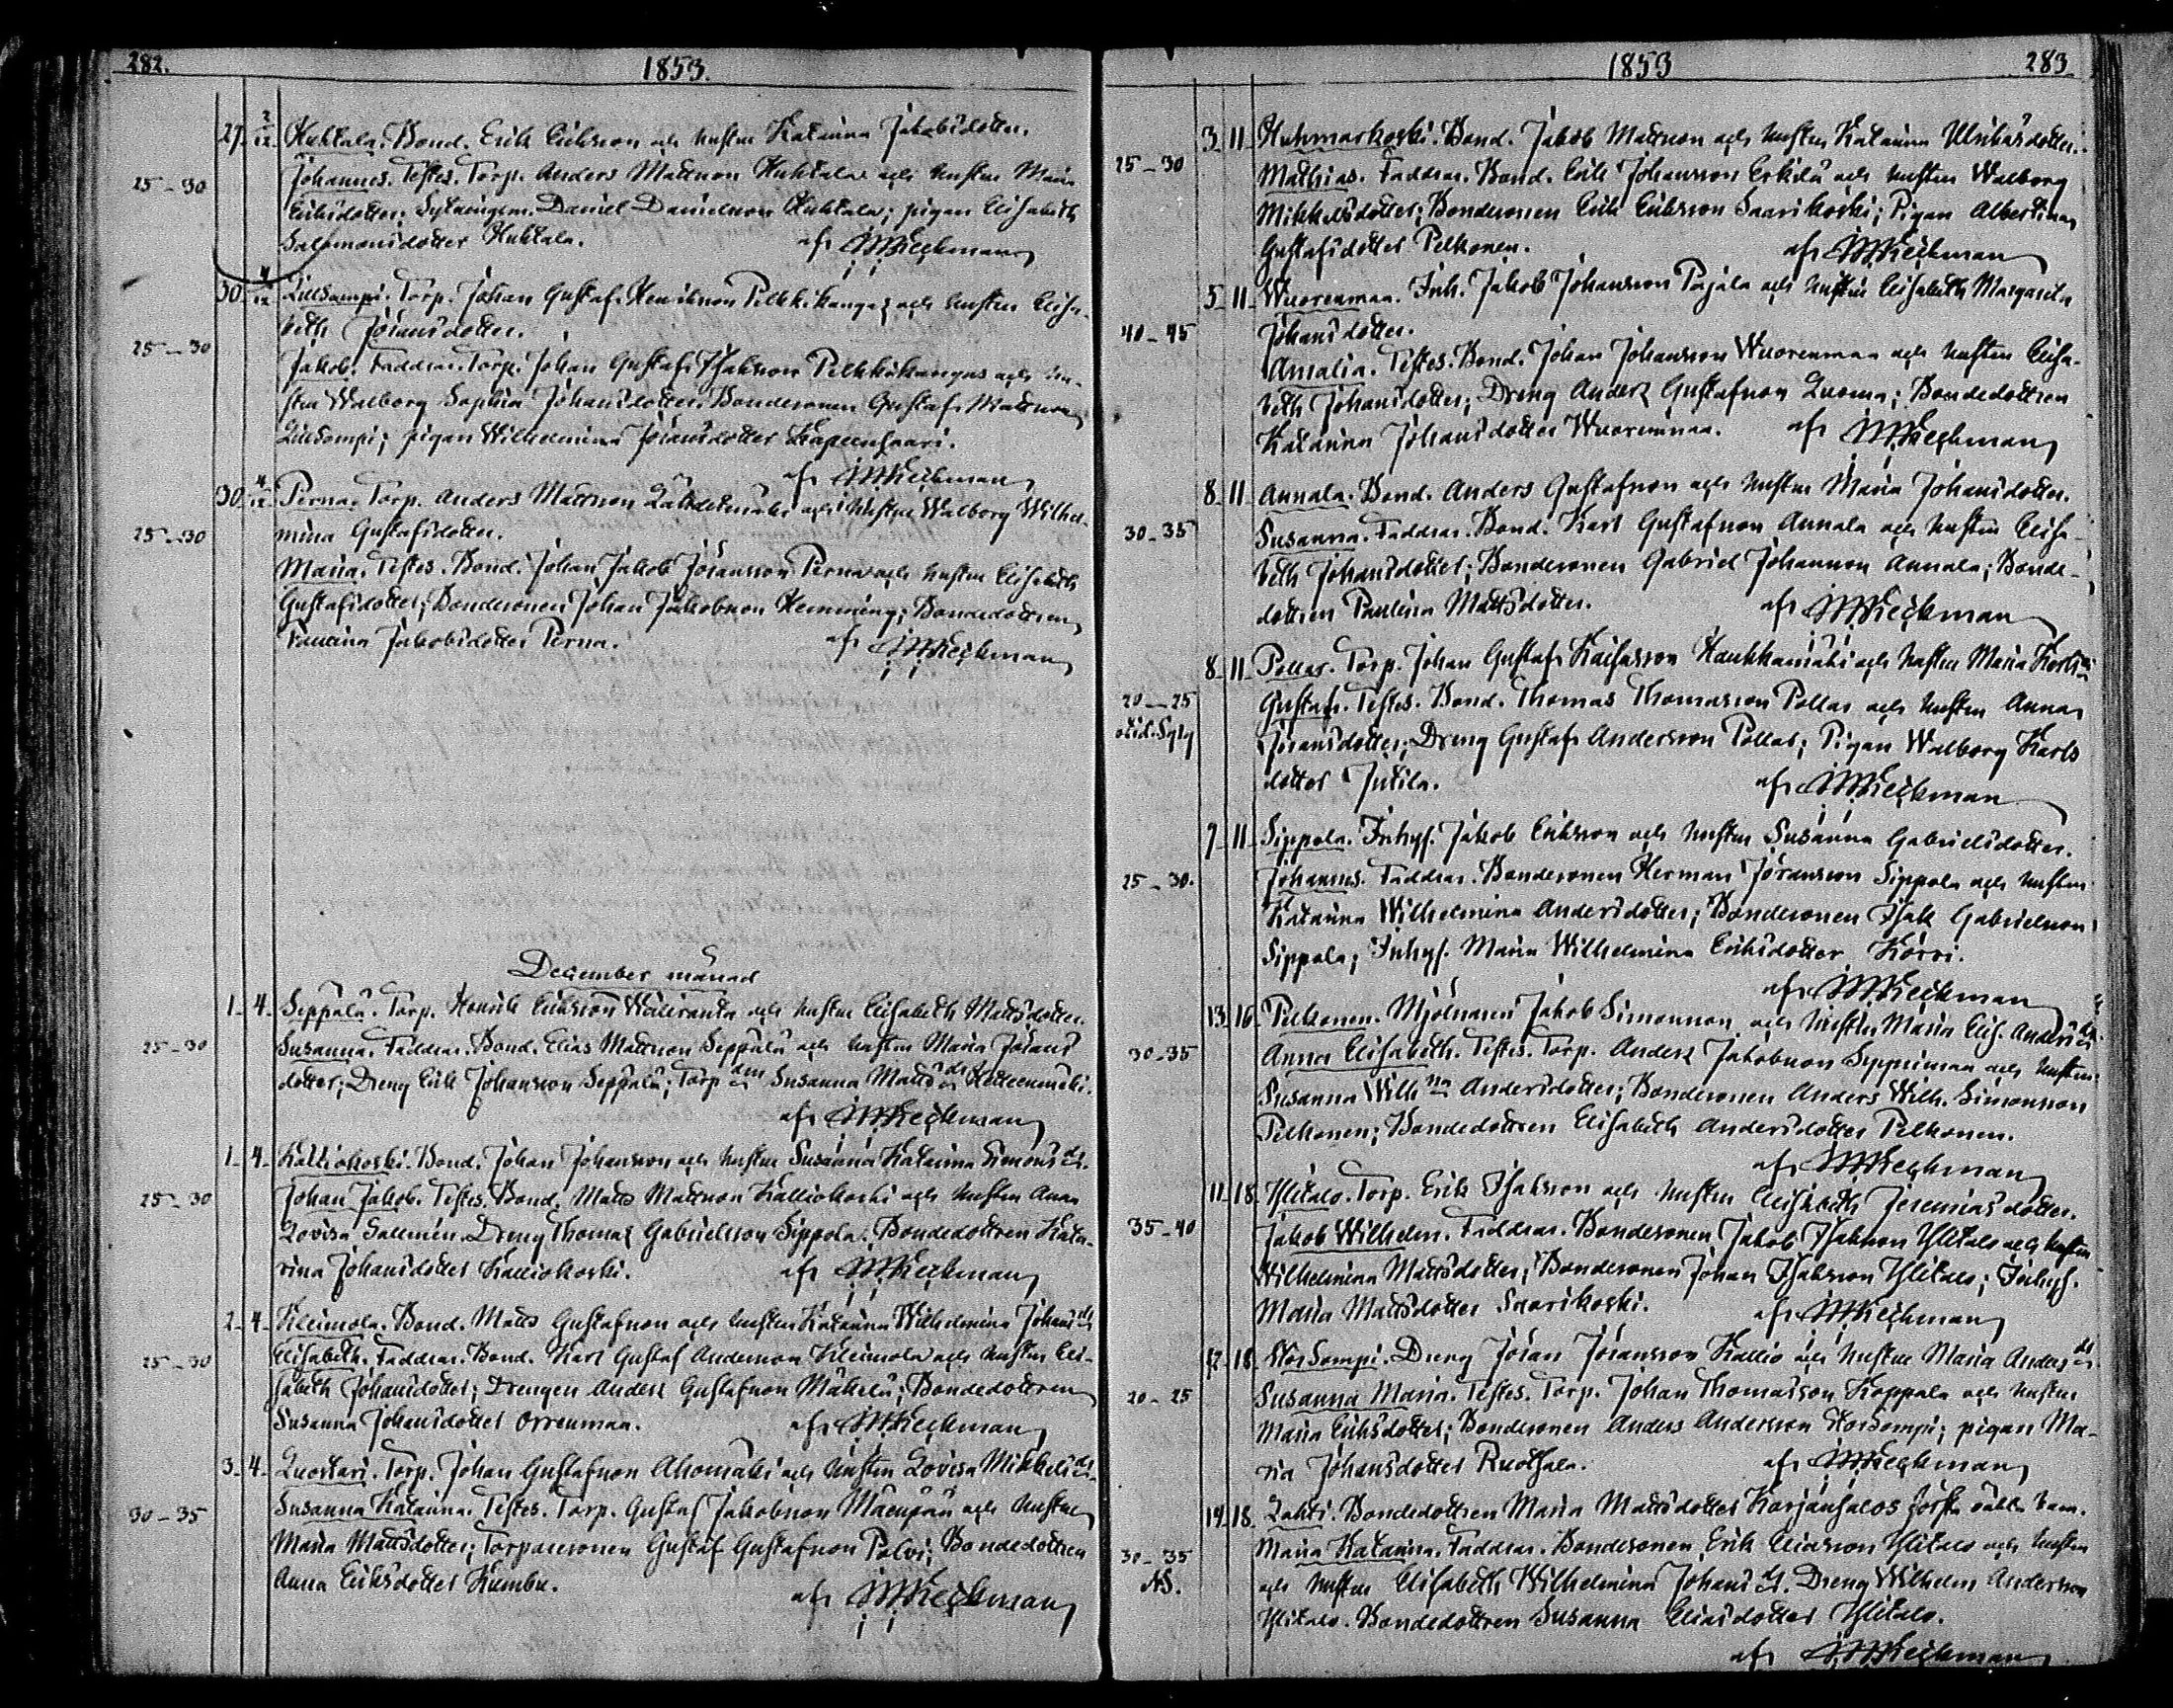 282. 1853.
27. 2/12 Huhtala. Bond. Erik Eriksson och hustru Katarina Jakobsdotter.
25-30 Johannes. Testes. Torp. Anders Mattsson Huhtala och hustru Maria
Eriksdotter; Sytningsm. Daniel Danielsson Huhtala; pigan Elisabeth
Salomonsdotter Huhtala. af J M Keckman
30. 4/12 Lillsompi. Torp. Johan Gustaf Henriksson Pelkkikangas och hustru Elisa-
beth Jöransdotter.
25-30 Jakob. Faddrar. Torp. Johan Gustaf Isaksson Pelkkikangas och hu-
stru Walborg Sophia Johansdotter; Bondesonen Gustaf Mattsson
Lillsompi; pigan Wilhelmina Jöransdotter
af J M Keckman
30. 4/12 Perna. Torp. Anders Mattsson och hustru Walborg Wilhel-
25-30 mina Gustafsdotter.
Maria. Testes. Bond. Johan Jakob Jöransson Perna och hustru Elisabeth
Gustafsdotter; Bondesonen Johan Jakobsson Hemming; Bondedottren
Paulina Jakobsdotter Perna. af J M Keckman
December månad
1. 4. Seppälä. Torp. Henrik Eriksson Wäliranta och hustru Elisabeth Mattsdotter.
25-30 Susanna. Faddrar. Bond. Elias Mattsson Seppälä och hustru Maria Jörans
dotter; Dreng Erik Johansson Seppälä; Torp. Susanna Matts dr
af J M Keckman
1. 4. Kalliokoski. Bond. Johan Johansson och hustru Susanna Katarina Simons dr.
25-30 Johan Jakob. Testes. Bond. Matts Mattsson Kalliokoski och hustru Anna
Lovisa Sallmén. Dreng Thomas Gabrielsson Sippola. Bondedottren Kata-
rina Johansdotter Kalliokoski. af J M Keckman
2. 4. Kleimola. Bond. Matts Gustafsson och hustru Katarina Wilhelmina Johans dr
25-30 Elisabeth. Faddrar. Bond. Karl Gustaf Andersson Kleimola och hustru Eli-
sabeth Johansdotter; Drengen Anders Gustafsson Mäkelä; Bondedottren
Susanna Johansdotter Orrenmaa. af J M Keckman
3. 4. Luostari. Torp. Johan Gustafsson Ahomäki och hustru Lovisa Mikkels dr.
30-35 Susanna Katarina. Testes. Torp. Gustaf Jakobsson Mäenpää och hustru
Maria Mattsdotter; Torparesonen Gustaf Gustafsson Palvi; Bondedottren
Anna Eriksdotter Kumbu. af J M Keckman
1853 283.
3. 11. Huhmarkoski. Bond. Jakob Mattsson och hustru Katarina Ulriksdotter.
25-30 Mathias. Faddrar. Bond. Erik Johansson Erkilä och hustru Walborg
Mikkelsdotter; Bondesonen Erik Eriksson Saarikoski; Pigan Albertina
Gustafsdotter Pelkonen. af J M Keckman
5. 11. Wuorenmaa. Inh. Jakob Johansson Pajala och hustru Elisabeth Margareta
40-45 Johansdotter.
Amalia. Testes. Bond. Johan Johansson Wuorenmaa och hustru Elisa-
beth Johansdotter; Dreng Anders Gustafsson Luoma; Bondedottren
Katarina Johansdotter Wuorenmaa. af J M Keckman
8. 11. Annala. Bond. Anders Gustafsson och hustru Maria Johansdotter.
30-35 Susanna. Faddrar. Bond. Karl Gustafsson Annala och hustru Elisa-
beth Johansdotter; Bondesonen Gabriel Johansson Annala; Bonde-
dottren Paulina Mattsdotter. af J M Keckman
8. 11. Pollar. Torp. Johan Gustaf Kaisasson Haukkamäki och hustru Maria
20-25 Gustaf. Testes. Bond. Thomas Thomasson Pollar och hustru Anna
Jöransdotter; Dreng Gustaf Andersson Pollar; Pigan Walborg Karls
dotter Jutila. af J M Keckman
7. 11. Sippola. Inhys. Jakob Eriksson och hustru Susanna Gabrielsdotter.
25-30. Johannes. Faddrar. Bondesonen Herman Jöransson Sippola och hustru
Katarina Wilhelmina Andersdotter; Bondesonen Isak Gabrielsson
Sippola; Inhys. Maria Wilhelmina Eriksdotter Körri.
af J M Keckman
13. 16. Pelkonen. Mjölnaren Jakob Simonsson och hustru Maria Elis. Anders dr.
30-35 Anna Elisabeth. Testes. Torp. Anders Jakobsson och hustru
Susanna Wilh:na Andersdotter; Bondesonen Anders Wilh. Simonsson
Pelkonen; Bondedottren Elisabeth Andersdotter Pelkonen.
af J M Keckman
11. 18. Ylitalo. Torp. Erik Isaksson och hustru Elisabeth Jeremiasdotter.
35-40 Jakob Wilhelm. Faddrar. Bondesonen Jakob Isaksson Ylitalo och hustru
Wilhelmina Mattsdotter; Bondesonen Johan Isaksson Ylitalo; Inhys.
Maria Mattsdotter Saarikoski. af J M Keckman
12. 18. Storsompi. Dreng Jöran Jöransson Kallio och hustru Maria Anders dr.
20-25 Susanna Maria. Testes. Torp. Johan Thomasson Koppala och hustru
Maria Eriksdotter; Bondesonen Anders Andersson Storsompi; pigan Ma-
ria Johansdotter Ruotsala. af J M Keckman
14. 18. Lahti. Bondedottren Maria Mattsdotter Karjansalos första oäkta barn.
30-35 Maria Katarina. Faddrar. Bondesonen Erik Eliasson Ylitalo och hustru
och hustru Elisabeth Wilhelmina Johans dr. Dreng Wilhelm Andersson
Ylitalo. Bondedottren Susanna Eliasdotter Ylitalo.
af J M Keckman